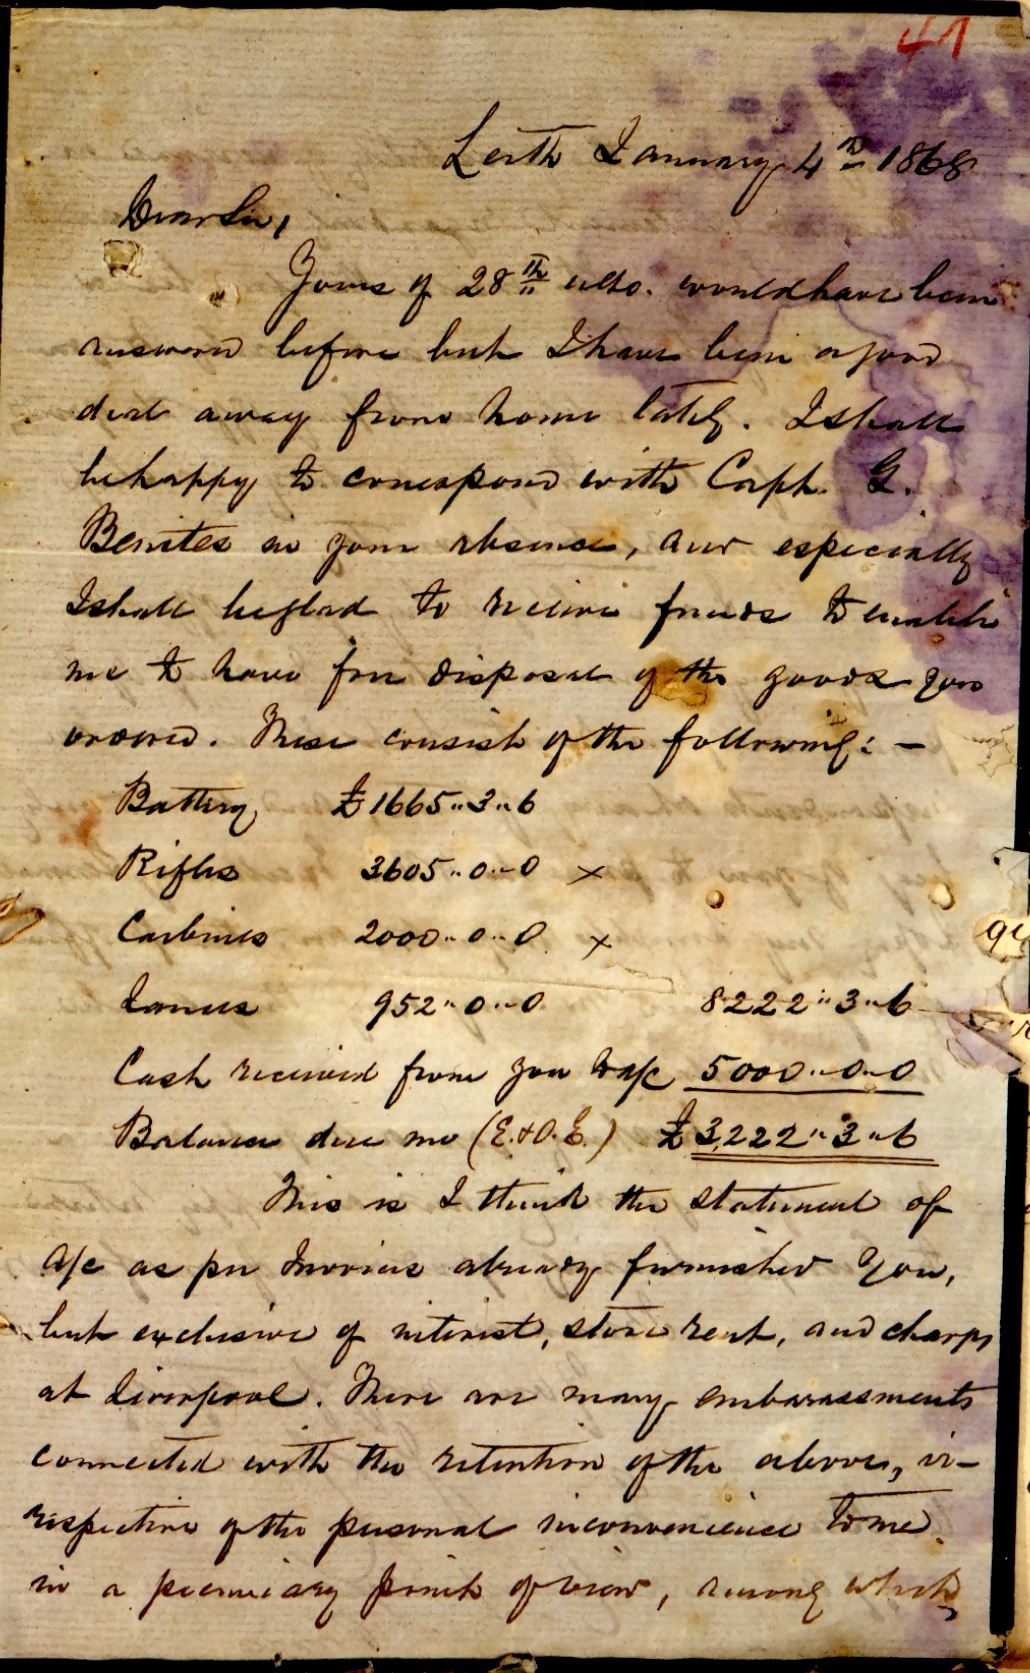 47
Leith January 4th 1868
Dear Sir,
Yours of 28th ulto. would have been
answered before but I have been a good
deal away from home lately. I shall
be happy to correspond with Capt. G.
Benites in your absence, and especially
I shall be glad to receive funds to enable
me to have free disposal of the goods you
ordered. These consist of the following: —
Battery £1665..3..6
Rifles 3605..0..0 x
Carbines 2000..0..0 x
Lances 952..0..0 8222..3..6
Cash received from you to a/c 5000..0..0
Balance due me (E. & O. E.) £3,222..3..6
This is I think the statement of
a/c as per Invoices already furnished you,
but exclusive of interest, store rent, and charges
at Liverpool. There are many embarassments
connected with the retention of the above, ir-
respective of the personal inconvenience to me
in a pecuniary point of view, among which